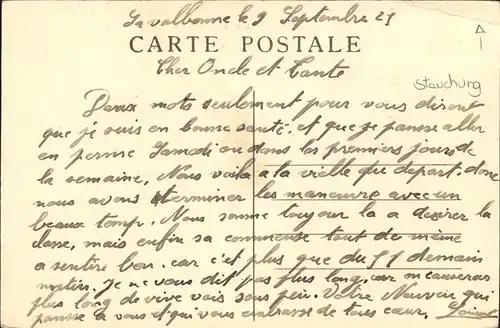 La valbonne le 9 Septembre 25
CARTE POSTALE
Cher Oncle et Tante
Stauchung
Deux mots seulement pour vous disont
que je suis en bonne santé, et que je pense aller
en perme Samedi ou dans les premiers jours de
la semaine. Nous voila a la vielle du depart, donc
nous avons terminer les manœuvre avec un
beaux temp. Nous somme toujour la a desirer la
classe, mais enfin sa commense tout de même
a sentire bon. car c'est plus que du 55 demain
matin. Je ne vous dit pas plus long, car on causeras
plus long de vive vois sous peu. Votre Neuveu qui
pansse a vous et qui vous embrasse de tous cœur.